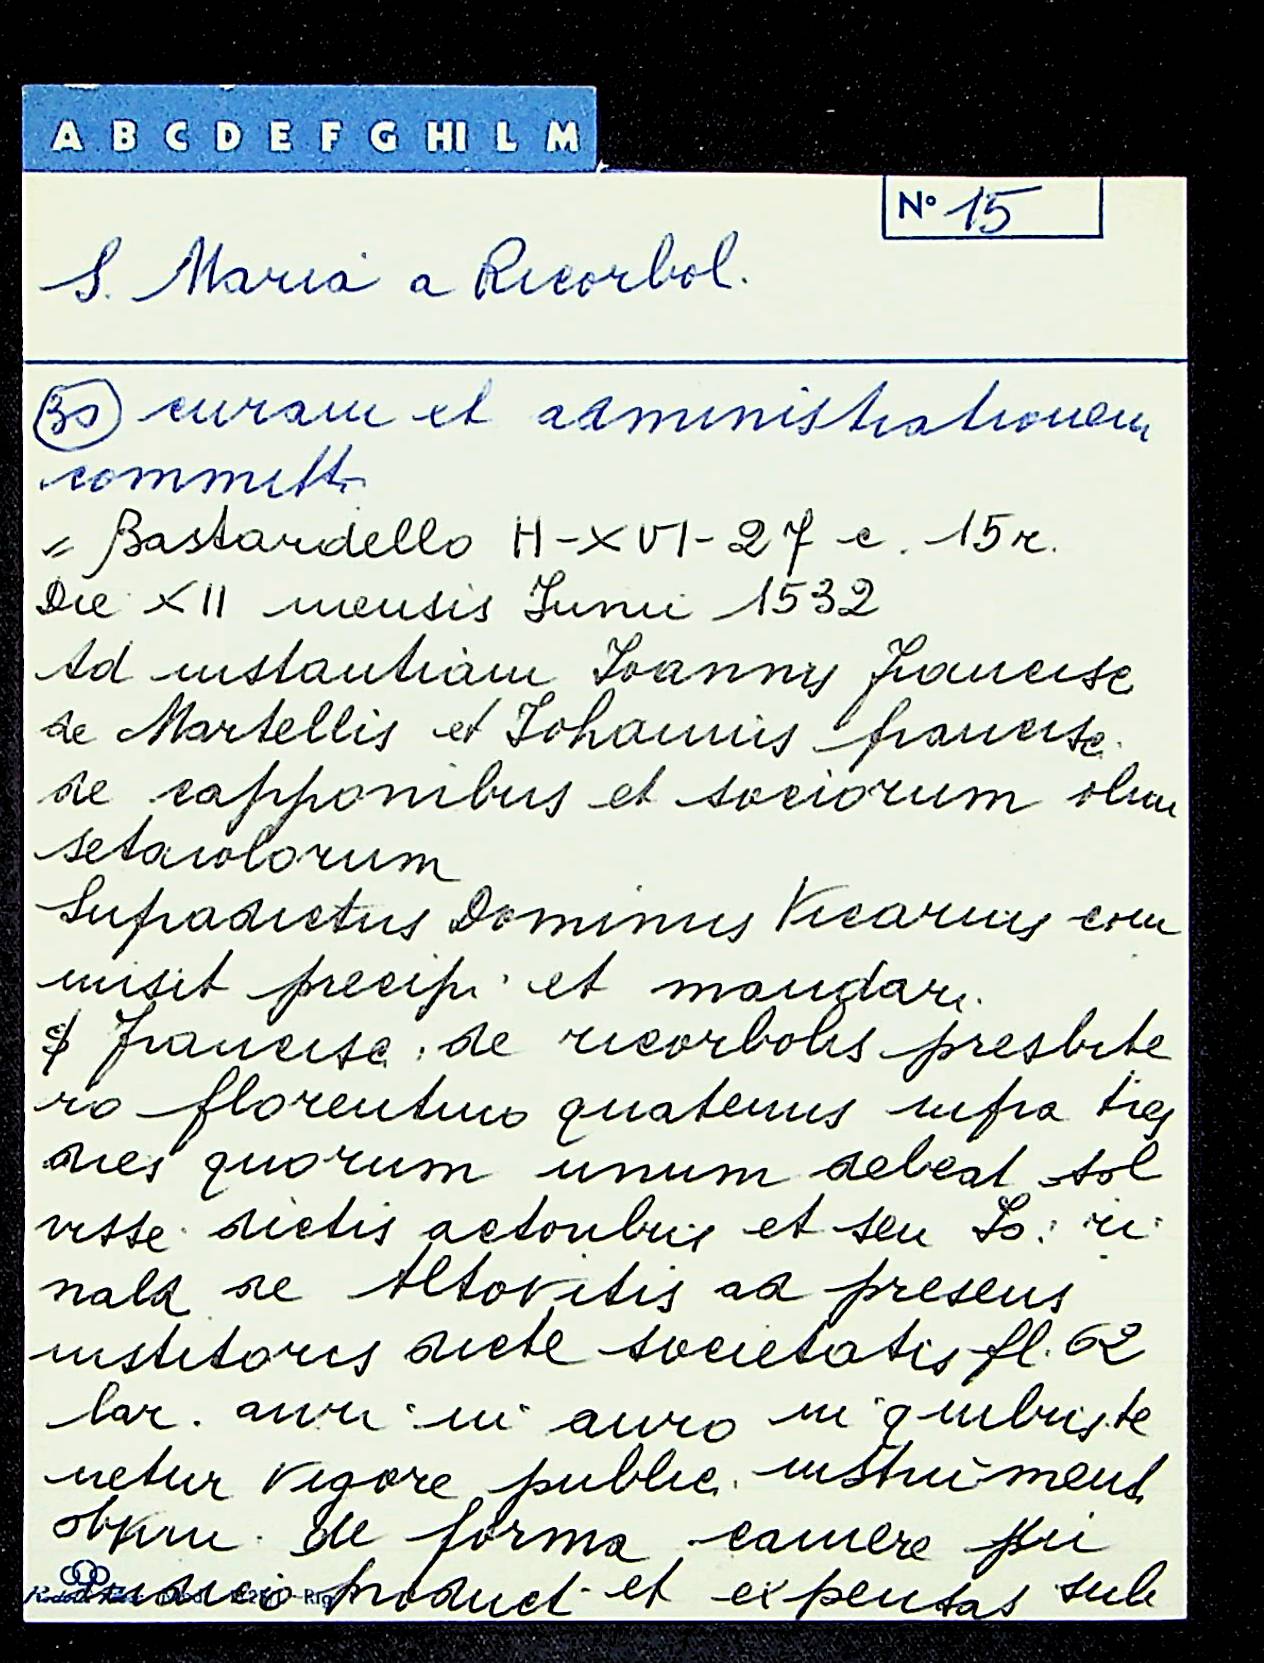 A B C D E F G HI L M
N° 15
S. Maria a Ricorbol.
30 curam et administrationem
committ.
= Bastardello H-XVI-27 c. 15r.
Die XII mensis Junii 1532
Ad instantiam Ioannis Francisc.
de Martellis et Johannis francisc.
de capponibus et sociorum olim
setaiolorum
Supradictus Dominus Vicarius com
misit precipi et mandari.
Francisc. de ricorbolis presbite
ro florentino quatenus infra tres
dies quorum unum debeat sol
visse dictis actoribus et seu Io: ri
nald de Altovitis ad presens
institoris dicte societatis fl. 62
lar. auri in auro in quibus te
netur vigore public. instrument
de forma camere
product. et expensas sub